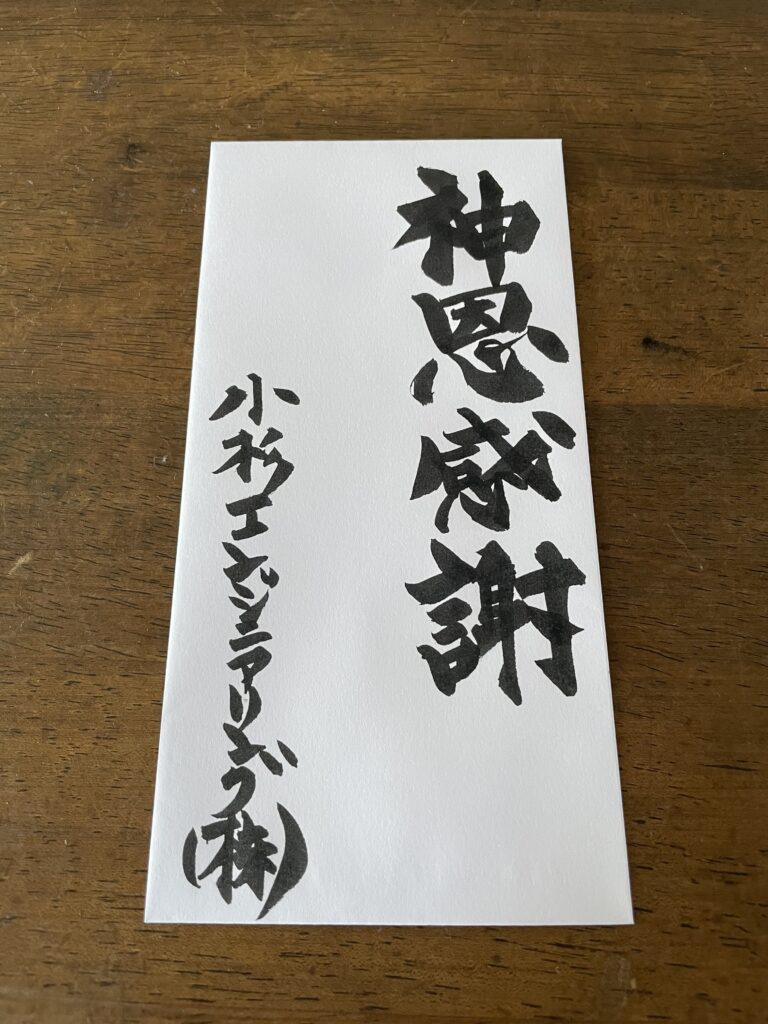 神恩感謝
小杉エンジニアリング(株)